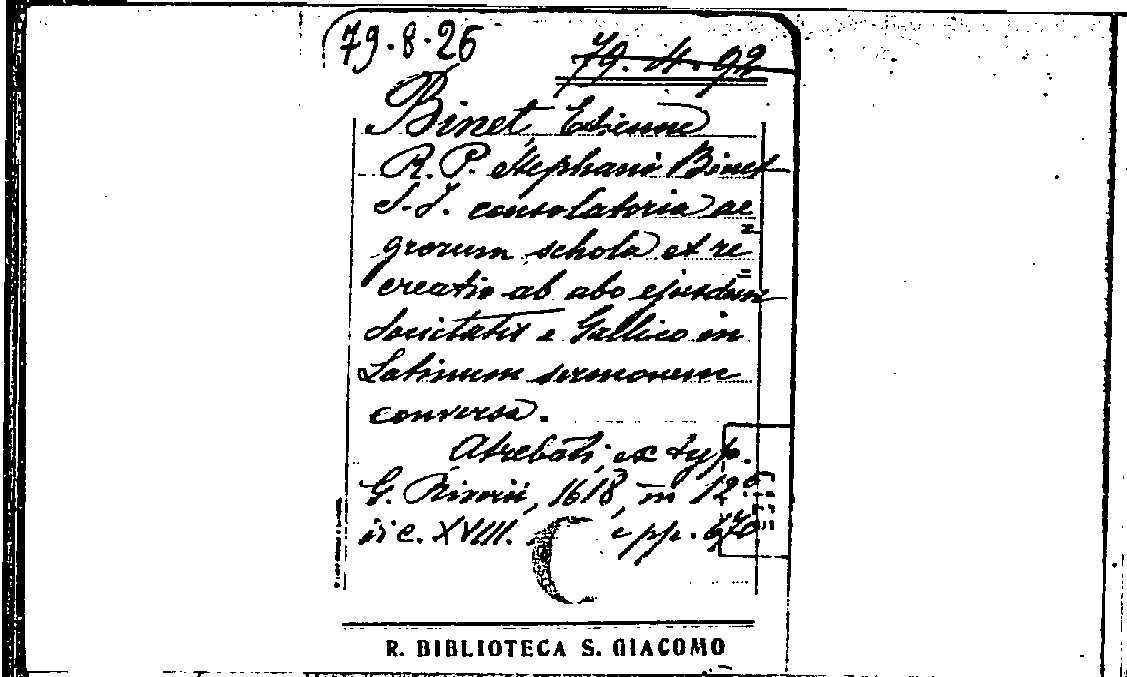 79.8.26
79.4.92
Binet, Etienne
R. P. Stephani Binet
S. J. consolatoria ae=
grorum schola et re=
creatio ab abo ejusdem
Societatis e Gallico in
Latinum sermonem
conversa.
Atrebati, ex typ.
G. Riverii, 1618, in 12°
di c. XVIII. e pp. 670
R. BIBLIOTECA S. GIACOMO